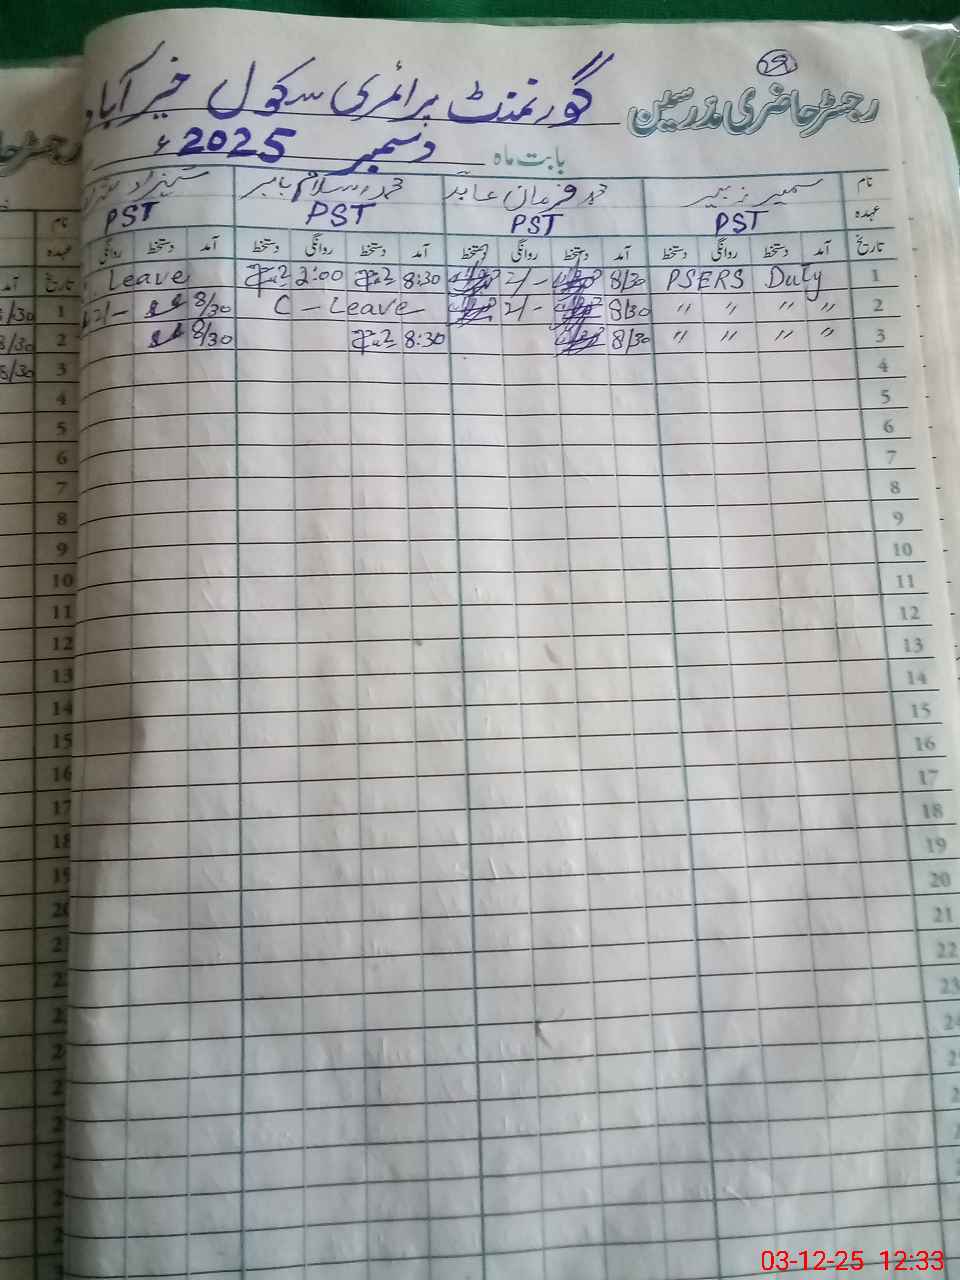 رجسٹر حاضری مدرسین گورنمنٹ پرائمری سکول خیر آباد
بابت ماہ دسمبر 2025ء
نام سمیر زبیر محمد فرمان عابد محمد اسلام بابر شہزاد
عہدہ PST PST PST PST
تاریخ آمد دستخط روانگی دستخط آمد دستخط روانگی دستخط آمد دستخط روانگی دستخط آمد دستخط روانگی
1 PSERS Duty 8/30 2/- 8:30 2:00 Leave
2 〃 〃 〃 〃 8/30 2/- C - Leave 8/30 2/-
3 〃 〃 〃 〃 8/30 8:30 8/30
4
5
6
7
8
9
10
11
12
13
14
15
16
17
18
19
20
21
22
23
24
رجسٹر حا
نام
عہدہ
تاریخ آمد
1 8/30
2 8/30
3 8/30
4
5
6
7
8
9
10
11
12
13
14
15
16
17
18
19
03-12-25 12:33